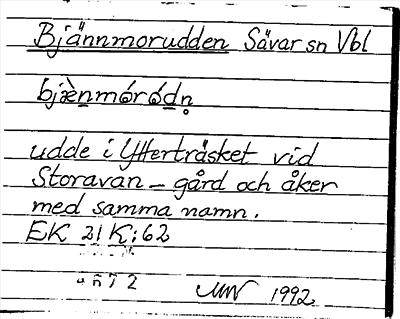 Bjännmorudden Sävar sn Vbl
bjæ̀nmóródn̥
udde i Ytterträsket vid
Storavan – gård och åker
med samma namn.
EK 21 K:62
4672
1992